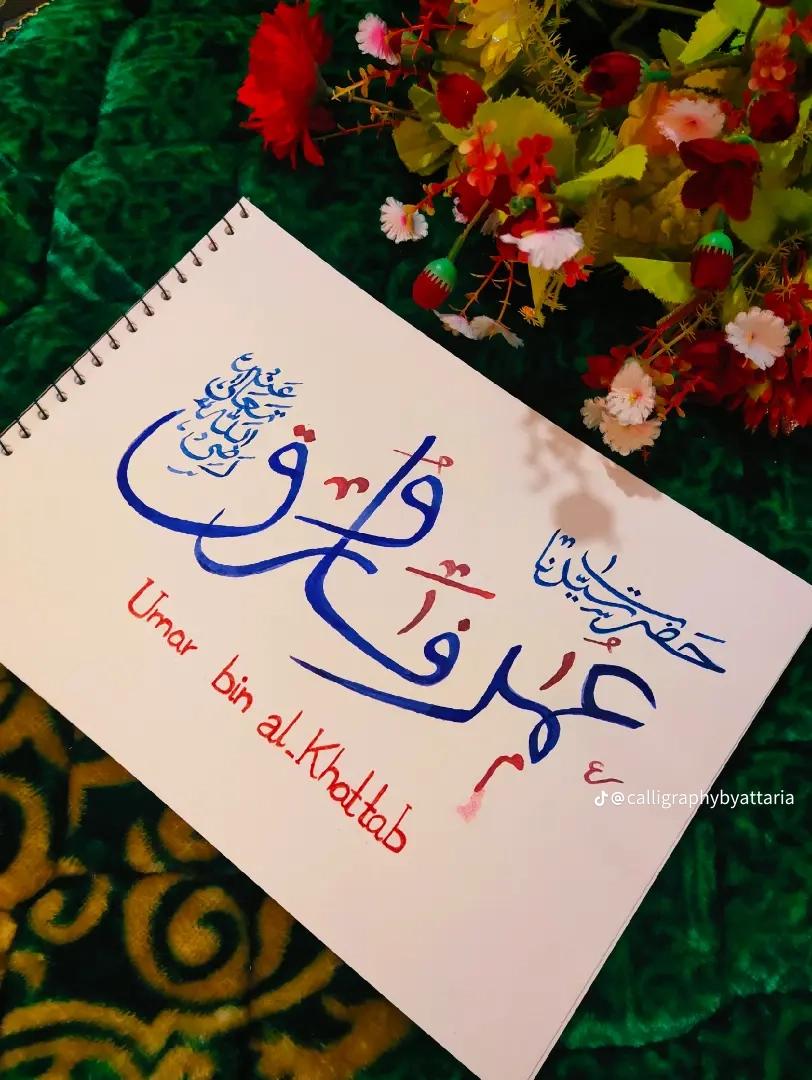 حضرت سیّدنا
عُمر فاروق
رضی اللہ تعالیٰ عنہ
Umar bin al-Khattab
@calligraphybyattaria